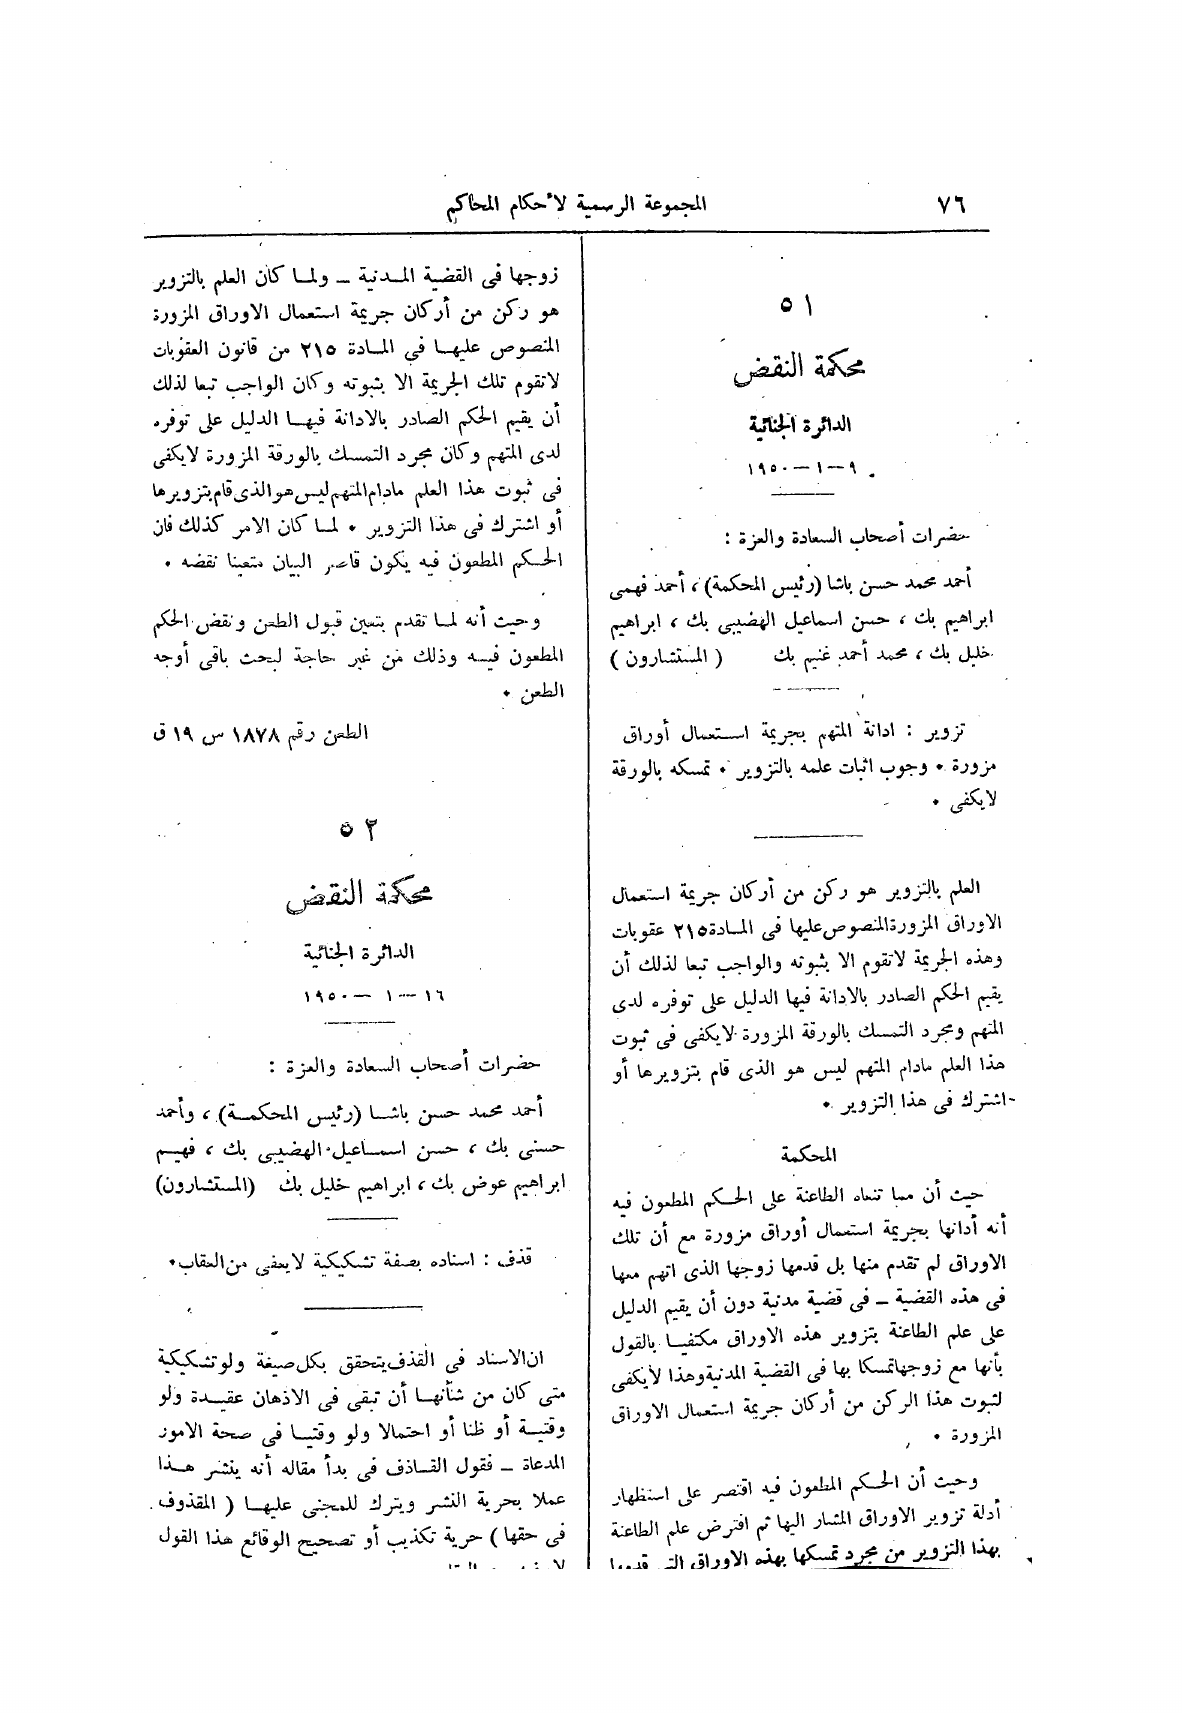 ٧٦
المجموعة الرسمية لأحكام المحاكم
٥١
محكمة النقض
الدائرة الجنائية
٩ – ١ – ١٩٥٠
حضرات أصحاب السعادة والعزة :
أحمد محمد حسن باشا (رئيس المحكمة) ، أحمد فهمى
ابراهيم بك ، حسن اسماعيل الهضيبى بك ، ابراهيم
خليل بك ، محمد أحمد غنيم بك ( المستشارون )
تزوير : ادانة المتهم بجريمة استعمال أوراق
مزورة • وجوب اثبات علمه بالتزوير • تمسكه بالورقة
لا يكفى •
العلم بالتزوير هو ركن من أركان جريمة استعمال
الاوراق المزورة المنصوص عليها فى المادة ٢١٥ عقوبات
وهذه الجريمة لاتقوم الا بثبوته والواجب تبعا لذلك أن
يقيم الحكم الصادر بالادانة فيها الدليل على توفره لدى
المتهم ومجرد التمسك بالورقة المزورة لايكفى فى ثبوت
هذا العلم مادام المتهم ليس هو الذى قام بتزويرها أو
اشترك فى هذا التزوير •
المحكمة
حيث أن مما تنعاه الطاعنة على الحكم المطعون فيه
أنه أدانها بجريمة استعمال أوراق مزورة مع أن تلك
الاوراق لم تقدم منها بل قدمها زوجها الذى اتهم معها
فى هذه القضية – فى قضية مدنية دون أن يقيم الدليل
على علم الطاعنة بتزوير هذه الاوراق مكتفيا بالقول
بأنها مع زوجها تمسكا بها فى القضية المدنية وهذا لايكفى
لثبوت هذا الركن من أركان جريمة استعمال الاوراق
المزورة •
وحيث أن الحكم المطعون فيه اقتصر على استظهار
أدلة تزوير الاوراق المشار اليها ثم افترض علم الطاعنة
بهذا التزوير من مجرد تمسكها بهذه الاوراق التى قدمها
زوجها فى القضية المدنية – ولما كان العلم بالتزوير
هو ركن من أركان جريمة استعمال الاوراق المزورة
المنصوص عليها فى المادة ٢١٥ من قانون العقوبات
لاتقوم تلك الجريمة الا بثبوته وكان الواجب تبعا لذلك
أن يقيم الحكم الصادر بالادانة فيها الدليل على توفره
لدى المتهم وكان مجرد التمسك بالورقة المزورة لايكفى
فى ثبوت هذا العلم مادام المتهم ليس هو الذى قام بتزويرها
أو اشترك فى هذا التزوير • لما كان الامر كذلك فان
الحكم المطعون فيه يكون قاصر البيان متعينا نقضه •
وحيث أنه لما تقدم يتعين قبول الطعن ونقض الحكم
المطعون فيه وذلك من غير حاجة لبحث باقى أوجه
الطعن •
الطعن رقم ١٨٧٨ س ١٩ ق
٥٢
محكمة النقض
الدائرة الجنائية
١٦ – ١ – ١٩٥٠
حضرات أصحاب السعادة والعزة :
أحمد محمد حسن باشا (رئيس المحكمة) ، وأحمد
حسنى بك ، حسن اسماعيل الهضيبى بك ، فهيم
ابراهيم عوض بك ، ابراهيم خليل بك (المستشارون)
قذف : اسناده بصفة تشكيكية لايعفى من العقاب•
ان الاسناد فى القذف يتحقق بكل صيغة ولو تشكيكية
متى كان من شأنها أن تبقى فى الاذهان عقيدة ولو
وقتية أو ظنا أو احتمالا ولو وقتيا فى صحة الامور
المدعاة – فقول القاذف فى بدأ مقاله أنه ينشر هذا
عملا بحرية النشر ويترك للمجنى عليها ( المقذوف
فى حقها ) حرية تكذيب أو تصحيح الوقائع هذا القول